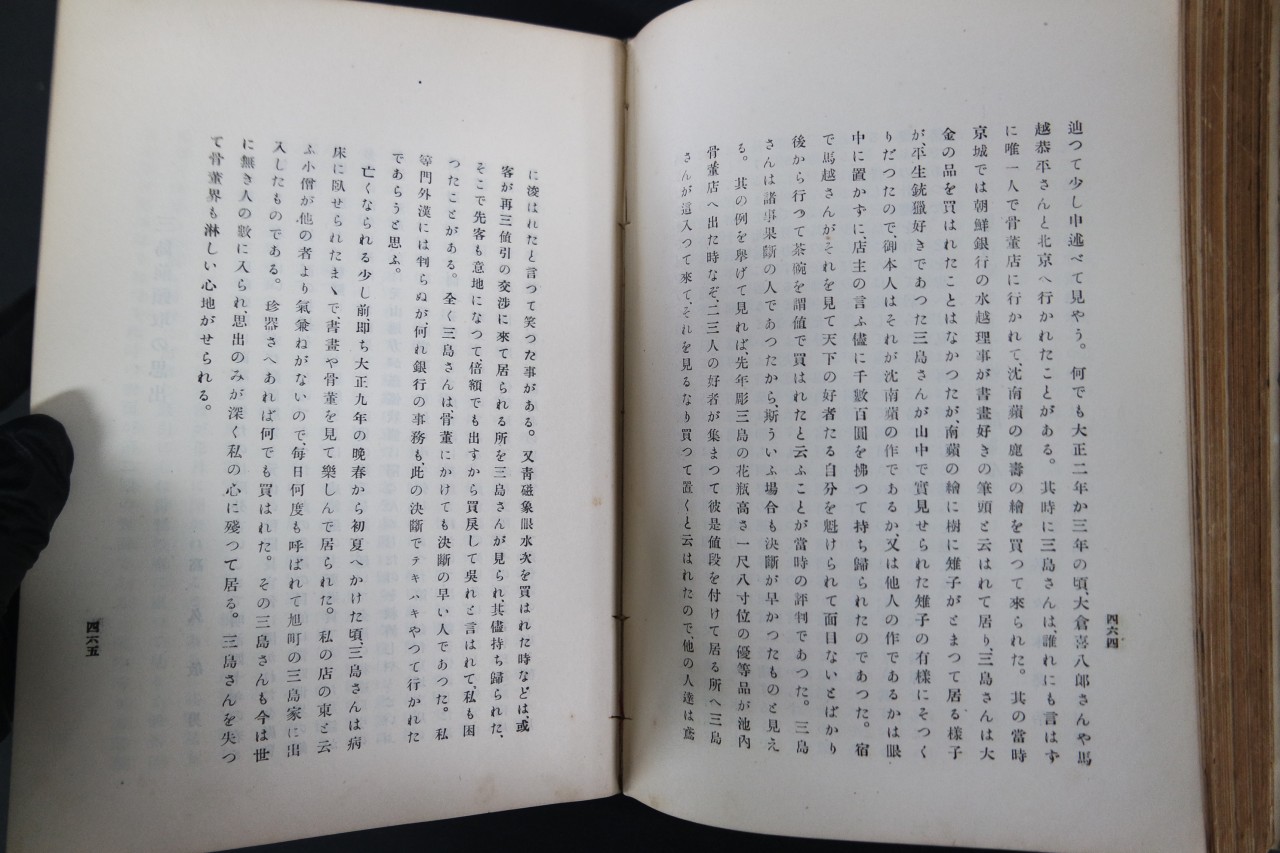 四六四
辿つて少し申述べて見やう。何でも大正二年か三年の頃、大倉喜八郎さんや馬
越恭平さんと北京へ行かれたことがある。其時に三島さんは、誰れにも言はず
に唯一人で骨董店に行かれて、沈南蘋の鹿壽の繪を買つて來られた。其の當時
京城では朝鮮銀行の水越理事が書畫好きの筆頭と云はれて居り、三島さんは大
金の品を買はれたことはなかつたが、南蘋の繪に樹に雉子がとまつて居る樣子
が、平生銃獵好きであつた三島さんが山中で實見せられた雉子の有樣にそつく
りだつたので、御本人はそれが沈南蘋の作であるか、又は他人の作であるかは眼
中に置かずに、店主の言ふ儘に千數百圓を拂つて持ち歸られたのであつた。宿
で馬越さんがそれを見て天下の好者たる自分を魁けられて面目ないとばかり
後から行つて茶碗を謂値で買はれたと云ふことが當時の評判であつた。三島
さんは諸事果斷の人であつたから、斯ういふ場合も決斷が早かつたものと見え
る。其の例を擧げて見れば、先年彫三島の花瓶高さ一尺八寸位の優等品が池內
骨董店へ出た時なぞ、二三人の好者が集まつて彼是値段を付けて居る所へ三島
さんが這入つて來て、それを見るなり買つて置くと云はれたので、他の人達は鳶
に浚はれたと言つて笑つた事がある。又靑磁象眼水次を買はれた時などは、或
客が再三値引の交涉に來て居られる所を三島さんが見られ、其儘持ち歸られた、
そこで先客も意地になつて倍額でも出すから買戾して吳れと言はれて、私も困
つたことがある。全く三島さんは、骨董にかけても決斷の早い人であつた。私
等門外漢には判らぬが何れ銀行の事務も、此の決斷でテキハキやつて行かれた
であらうと思ふ。
亡くなられる少し前卽ち大正九年の晚春から初夏へかけた頃、三島さんは病
床に臥せられたまゝで、書畫や骨董を見て樂しんで居られた。私の店の東と云
ふ小僧が他の者より氣兼ねがないので、每日何度も呼ばれて旭町の三島家に出
入したものである。珍器さへあれば何でも買はれた。その三島さんも今は世
に無き人の數に入られ、思出のみが深く私の心に殘つて居る。三島さんを失つ
て骨董界も淋しい心地がせられる。
四六五